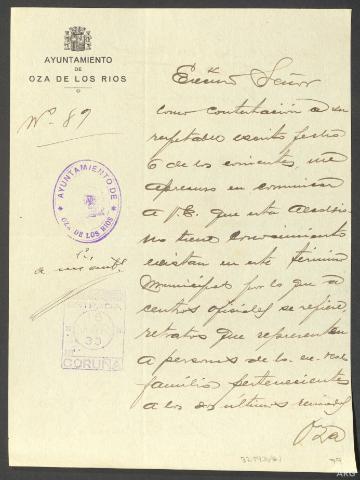 AYUNTAMIENTO
DE
OZA DE LOS RIOS
Nº 89
AYUNTAMIENTO DE
OZA DE LOS RIOS
ENTRADA
33
CORUÑA
Excmo Señor
como contestación a su
respetable escrito fecha
6 de los corrientes, me
apresuro en comunicar
a V.E. que esta Alcaldia
no tiene conocimiento
existan en este término
Municipal por lo que a
centros oficiales se refiere,
retratos que representen
a personas de la ex-real
familia pertenecientes
a los dos últimos reinados
Oza